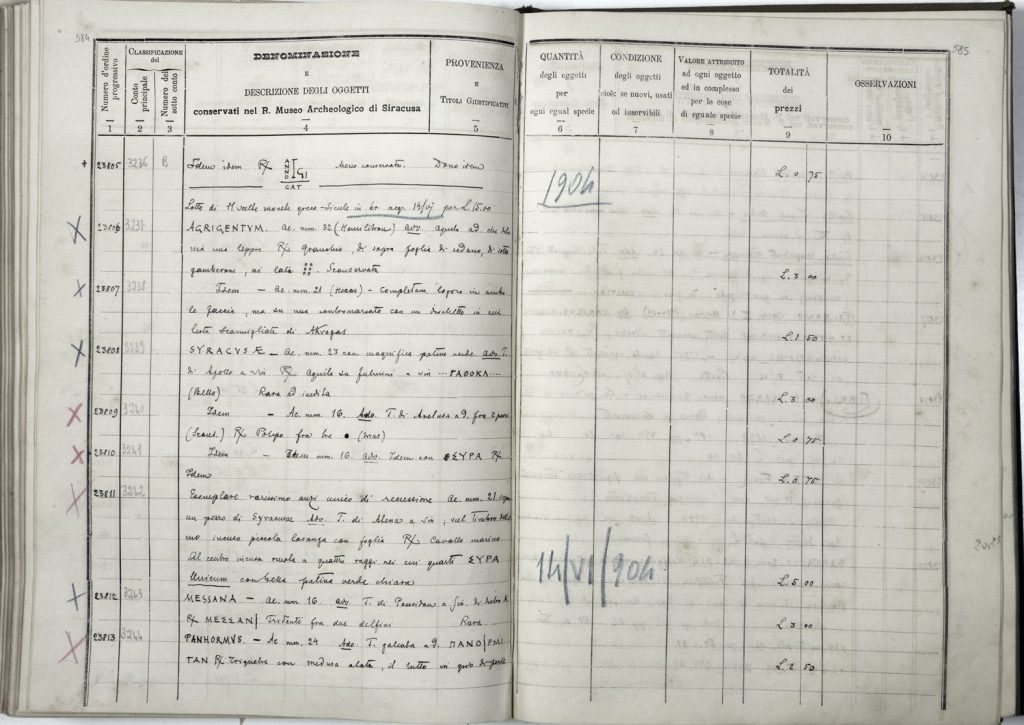 584
Numero d'ordine progressivo
CLASSIFICAZIONE del
Conto principale
Numero del sotto conto
DENOMINAZIONE
E
DESCRIZIONE DEGLI OGGETTI
conservati nel R. Museo Archeologico di Siracusa
PROVENIENZA
E
TITOLI GIUSTIFICATIVI
1 2 3 4 5
23805 3236 B Idem idem R/ Meno conservato. Dono idem
CAT
Lotto di 11 scelte monete greco-sicule in acq. 14/VI per L. 15.00
23806 3237 AGRIGENTVM. Ae. mm. 32 (Hemilitron) adv. Aquila a d. che
una lepre R/ Granchio, di sopra foglia di sedano, di sotto
gamberone, ai lati Sconservata
23807 3238 Idem — Ae. mm 21 (Hexas) - Completam. logoro in ambo
le faccie, ma su una contromarcato con un dischetto in cui
testa scarmigliata di Akragas
23808 3239 SYRACVSÆ — Ae. mm. 23 con magnifica patina verde adv. T.
di Apollo a sin R/ Aquila su fulmini a sin ···ΓΑΘΟΚΛ····
(Bello) Rara ed inedita
23809 3240 Idem — Ae. mm. 16. Adv. T. di Aretusa a d. fra 2
R/ Polipo fra tre •
23810 3241 Idem — Idem mm. 16. adv. Idem con ΣΥΡΑ R/
Idem
23811 3242 Esemplare rarissimo anzi unico di Ae. mm. 21
un pezzo di Syracusae Adv. T. di Atena a sin, sul
mo incusa piccola losanga con foglia R/ Cavallo marino
Al centro incusa ruola a quattro raggi nei cui quarti ΣΥΡΑ
Unicum con bella patina verde chiara
23812 3243 MESSANA — Ae. mm. 16. adv T. di Poseidon a sin. di
R/ ΜΕΣΣΑΝ/ Tridente fra due delfini Rara
23813 3244 PANHORMVS. — Ae mm. 24 Adv. T. galeata a d. ΠΑΝΟ/ΡΜΙ
ΤΑΝ R/ Triquetra con medusa alata, il tutto in giro di perle
585
QUANTITÀ
degli oggetti
per
ogni egual specie
CONDIZIONE
degli oggetti
cioè: se nuovi, usati
od inservibili
VALORE ATTRIBUTO
ad ogni oggetto
ed in complesso
per le cose
di eguale specie
TOTALITÀ
dei
prezzi
OSSERVAZIONI
6 7 8 9 10
L. 0 75
1904
L. 3 00
L. 1 50
L. 3 00
L. 0 75
L. 0 75
14/VI/904
L. 5 00
L. 3 00
L. 2 50